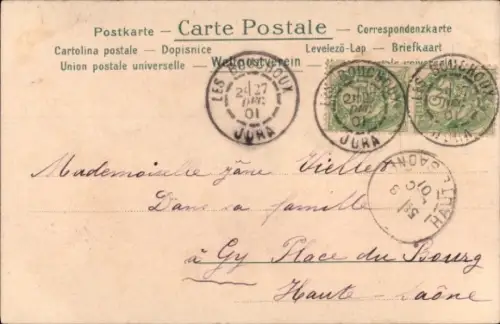 Postkarte – Carte Postale – Correspondenzkarte
Cartolina postale – Dopisnice – Levelező-Lap – Briefkaart
Union postale universelle – Weltpostverein
LES BOUCHOUX
27
DEC
01
JURA
LES BOUCHOUX
DEC
01
JURA
LES BOUCHOUX
JURA
HAUTE SAONE
Mademoiselle Vieille
Dans sa famille
à Gy Place du Bourg
Haute-Saône